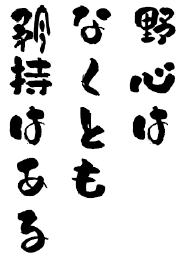 野心は
なくとも
矜持はある